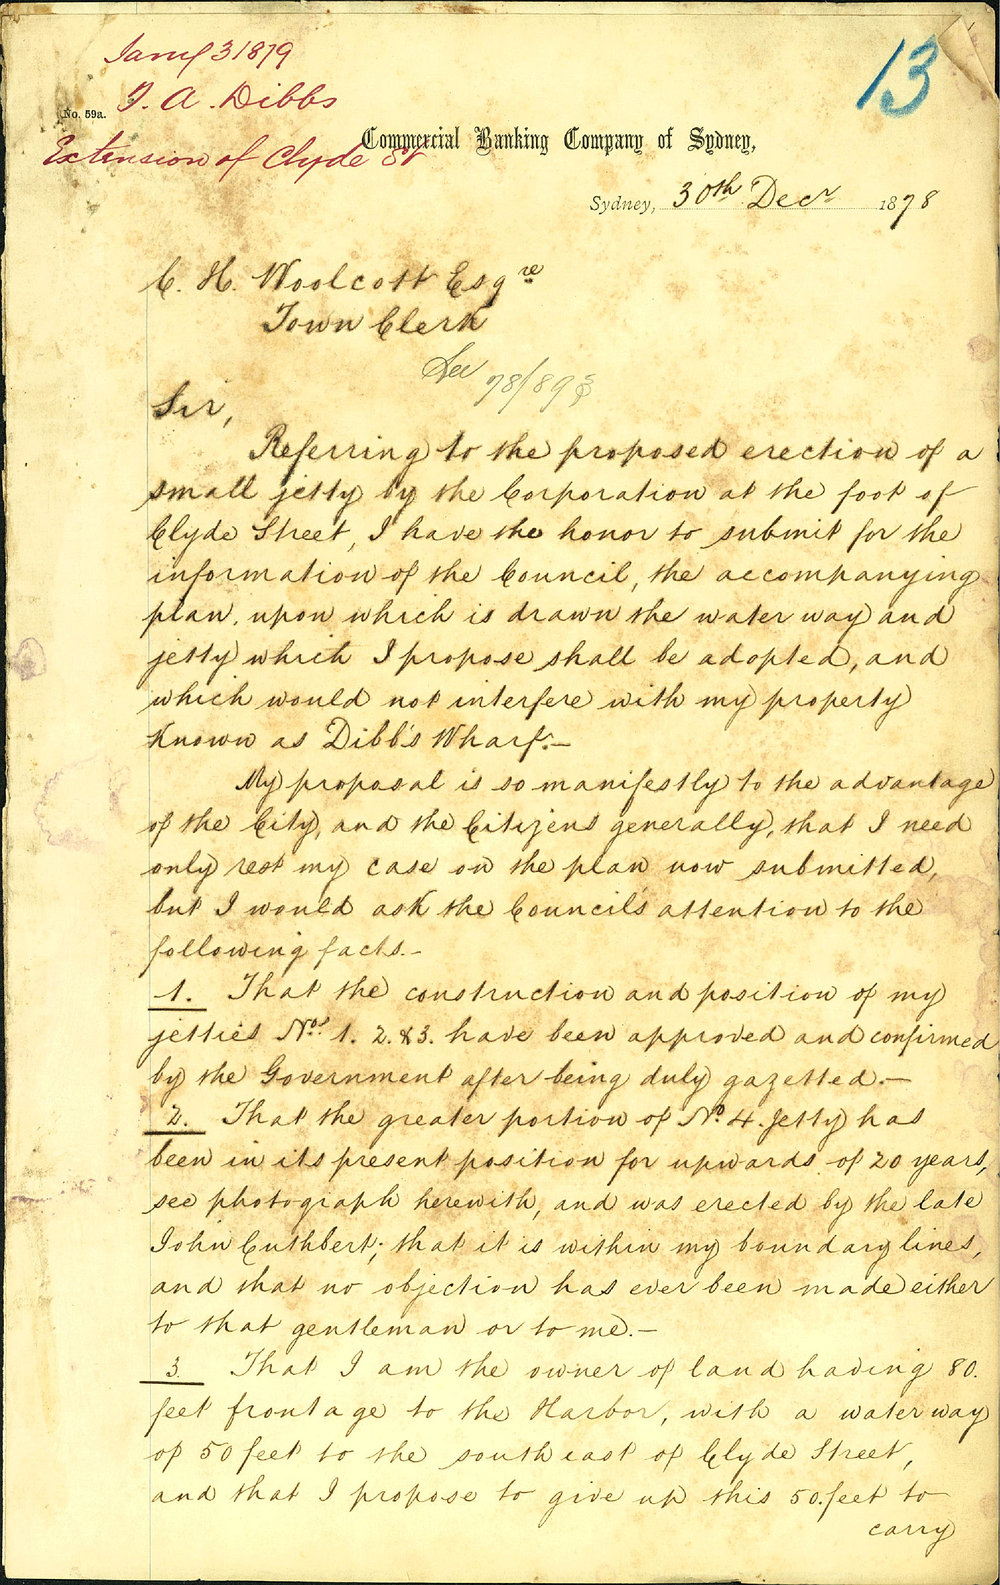 Jany 3 1879
13
No. 59a.
T. A. Dibbs
Extension of Clyde St
Commercial Banking Company of Sydney,
Sydney, 30th Decr 1878
C. H. Woolcott Esqre
Town Clerk
See 78/893
Sir,
Referring to the proposed erection of a
small jetty by the Corporation at the foot of
Clyde Street, I have the honor to submit for the
information of the Council, the accompanying
plan, upon which is drawn the water way and
jetty which I propose shall be adopted, and
which would not interfere with my property
known as Dibb's Wharf.—
My proposal is so manifestly to the advantage
of the City, and the Citizens generally, that I need
only rest my case on the plan now submitted,
but I would ask the Council's attention to the
following facts.—
1. That the construction and position of my
jetties Nos. 1. 2. & 3. have been approved and confirmed
by the Government after being duly gazetted.—
2. That the greater portion of No. 4. Jetty has
been in its present position for upwards of 20 years,
see photograph herewith, and was erected by the late
John Cuthbert; that it is within my boundary lines,
and that no objection has ever been made either
to that gentleman or to me.—
3. That I am the owner of land having 80.
feet frontage to the Harbor, with a water way
of 50 feet to the south east of Clyde Street,
and that I propose to give up this 50. feet to
carry